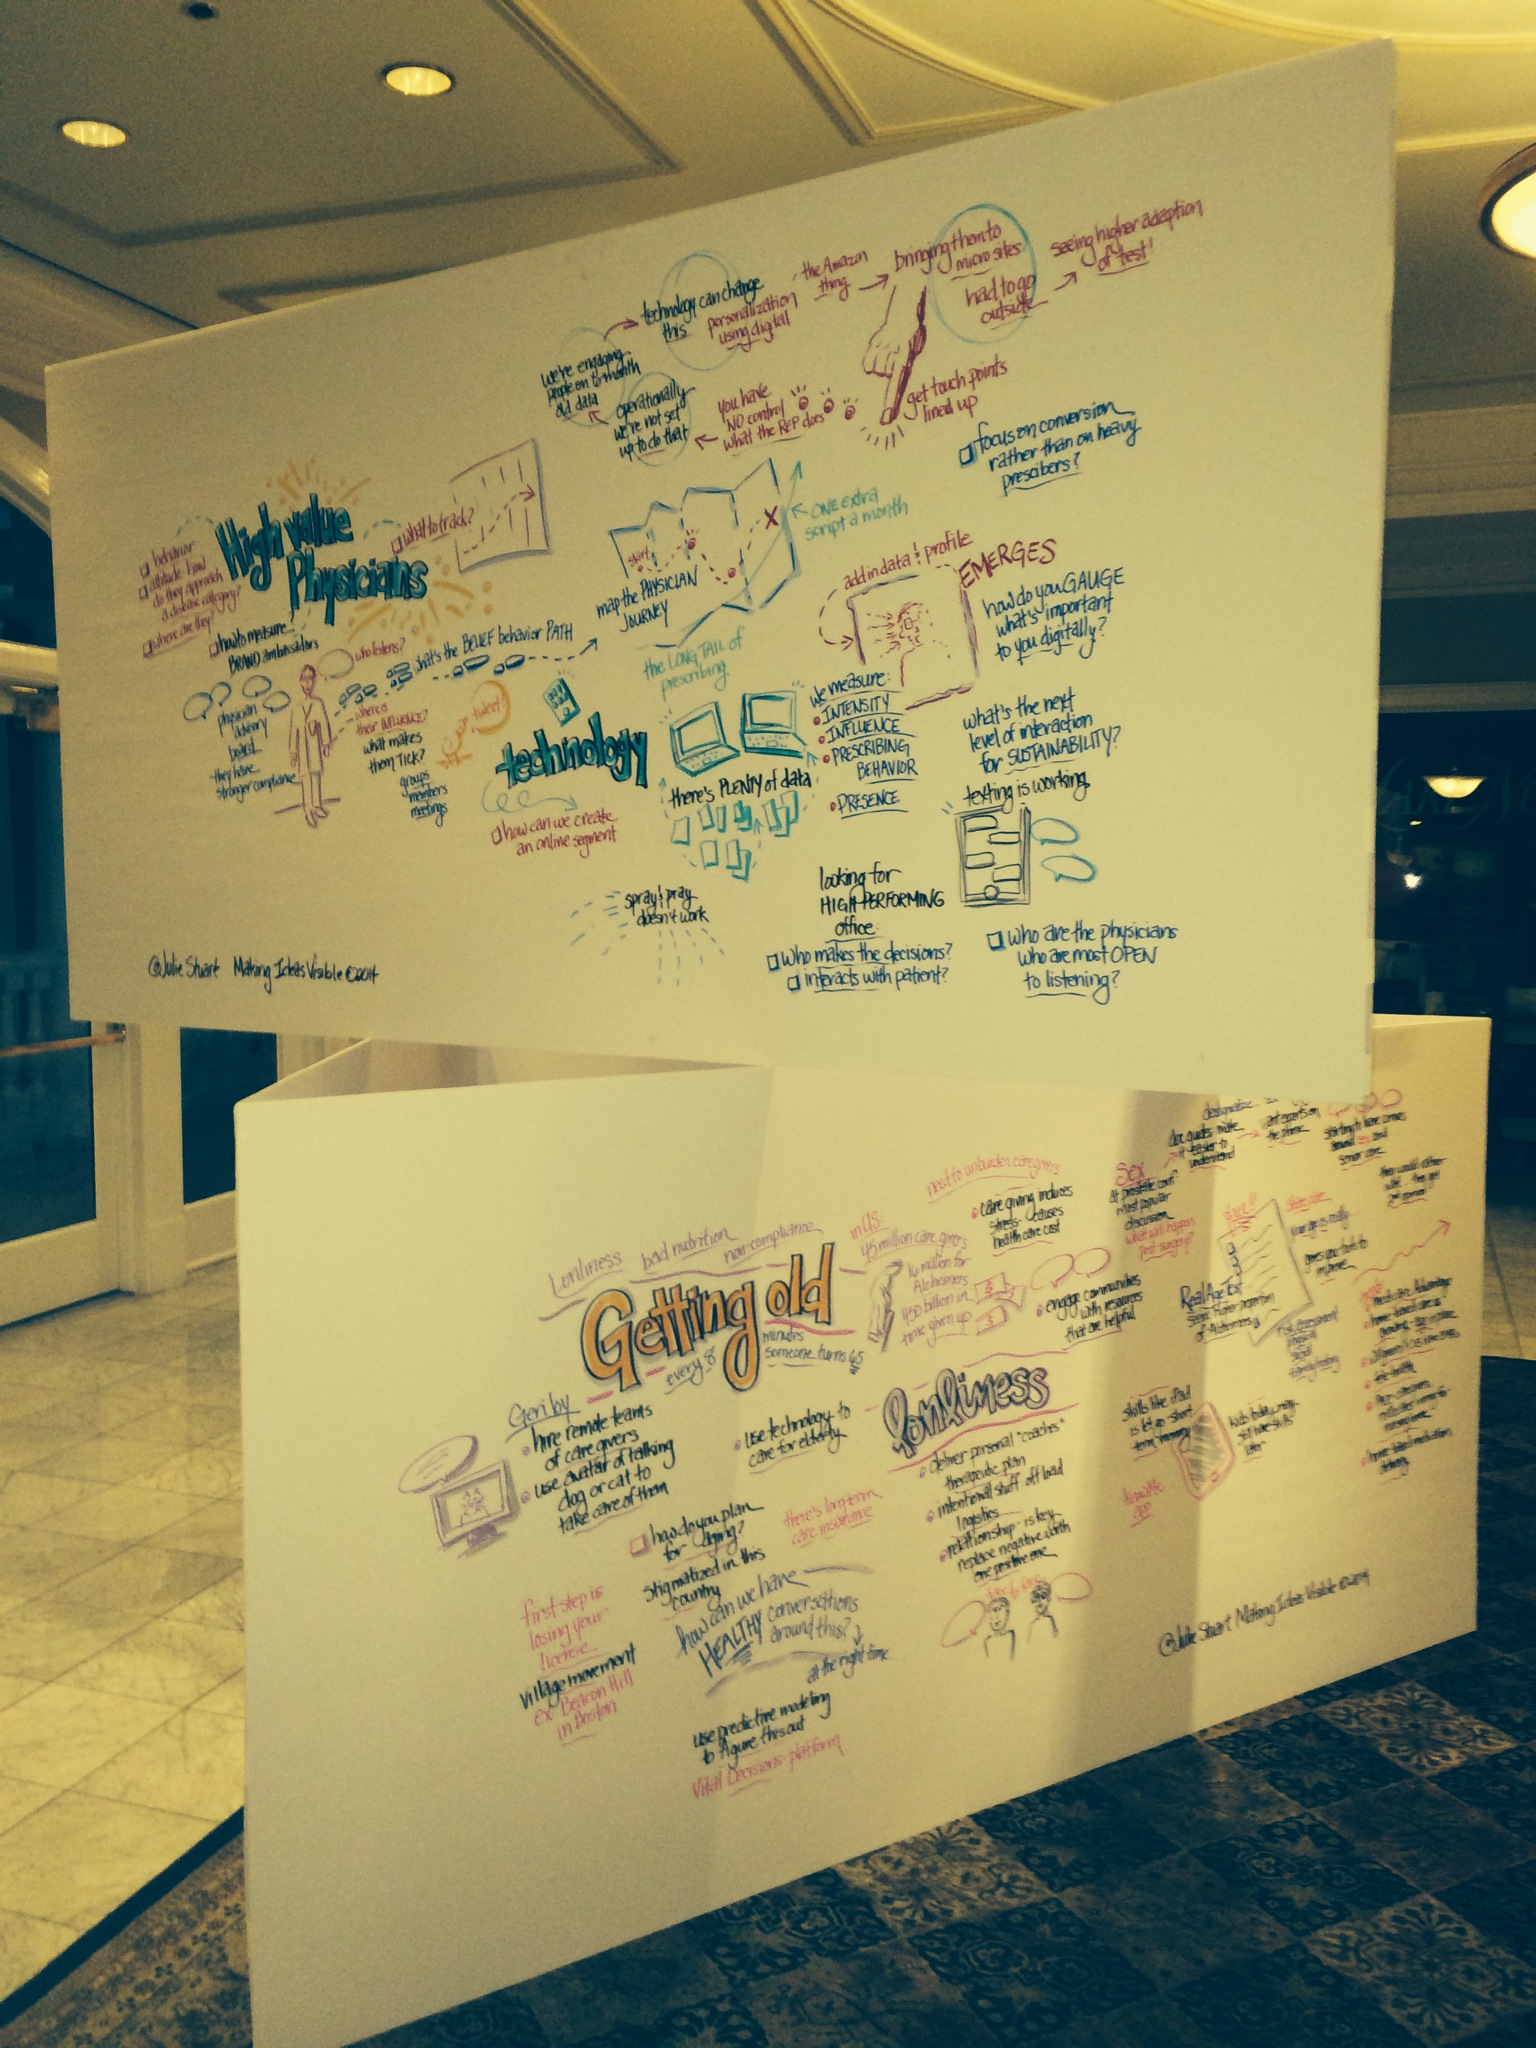 High value
Physicians
behavior
attitude how
do they approach
a disease category?
where are they?
how to measure
BRAND ambassadors
who listens?
physician
advisory
board
they have
stronger compliance
where is
their INFLUENCE?
what makes
them TICK?
groups
members
meetings
what to track?
what's the BELIEF behavior PATH
tweet!
technology
how can we create
an online segment
start
map the PHYSICIAN
JOURNEY
X
ONE extra
script a month
the LONG TAIL of
prescribing
there's PLENTY of data
spray & pray
doesn't work
we're engaging
people on
old data
technology can change
this
personalization
using digital
the Amazon
thing
bringing them to
micro sites
had to go
outside
seeing higher adoption
of test!
get touch points
lined up
you have
NO control
what the REP does
operationally
we're not set
up to do that
focus on conversion
rather than on heavy
prescibers?
add in data & profile
EMERGES
we measure:
INTENSITY
INFLUENCE
PRESCRIBING
BEHAVIOR
PRESENCE
how do you GAUGE
what's important
to you digitally?
what's the next
level of interaction
for SUSTAINABILITY?
texting is working
looking for
HIGH PERFORMING
office:
who makes the decisions?
interacts with patient?
who are the physicians
who are most OPEN
to listening?
@Julie Stuart Making Ideas Visible ©2014
Lonliness bad nutrition non-compliance
Getting old
every 8
minutes
someone turns 65
in US
45 million care givers
16 million for
Alzheimers
450 billion in
time given up
need to unburden caregivers
care giving induces
stress - causes
health care cost
engage communities
with resources
that are helpful
Geriby
hire remote teams
of care givers
use avatar of talking
dog or cat to
take care of them
use technology to
care for elderly
how do you plan
for aging?
stigmatized in this
country
there's long-term
care insurance
how can we have
HEALTHY conversations
around this?
at the right time
first step is
losing your
license
village movement
ex Beacon Hill
in Boston
use predictive modeling
to figure this out
Vital Decisions platform
lonliness
deliver personal "coaches"
therapeutic plan
intentional stuff off load
logistics
relationship is key
replace negative with
one positive one
face to face
Sex
at prostate conf
most popular
discussion
what will happen
post surgery?
care guides make
it easier to
understand
want experts on
the phone
Real Age test
of Alzheimers
skills like iPad
is let go - short
term memory
@Julie Stuart Making Ideas Visible ©2014